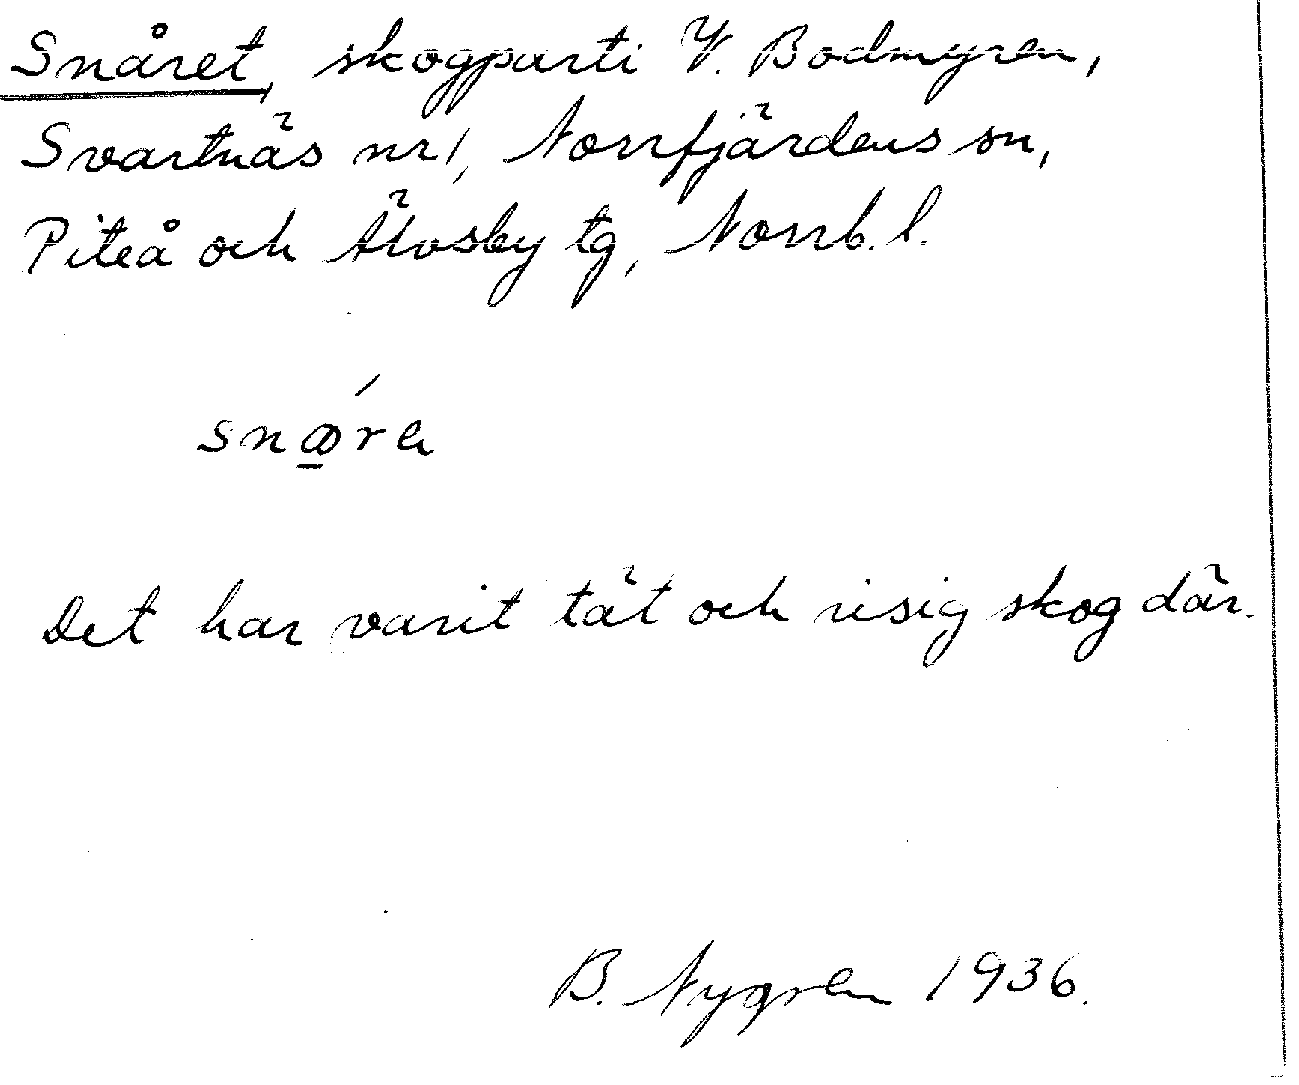 Snåret, skogparti V. Bodmyren,
Svartnäs nr 1, Norrfjärdens sn,
Piteå och Älvsby tg, Norrb. l.
Det har varit tät och risig skog där.
B. Nygren 1936.